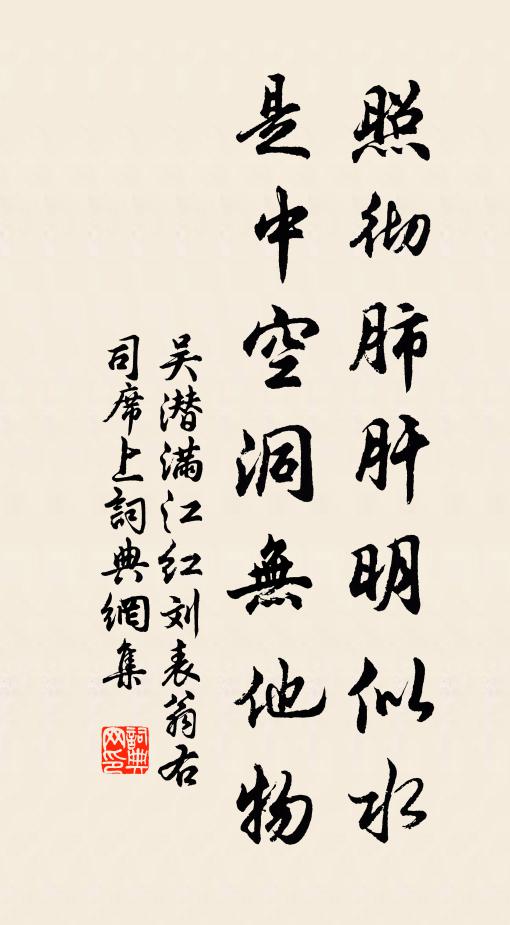 照彻肺肝明似水
是中空洞無他物
吴潜满江红刘表翁右
司席上詞典網集
詞典
网印